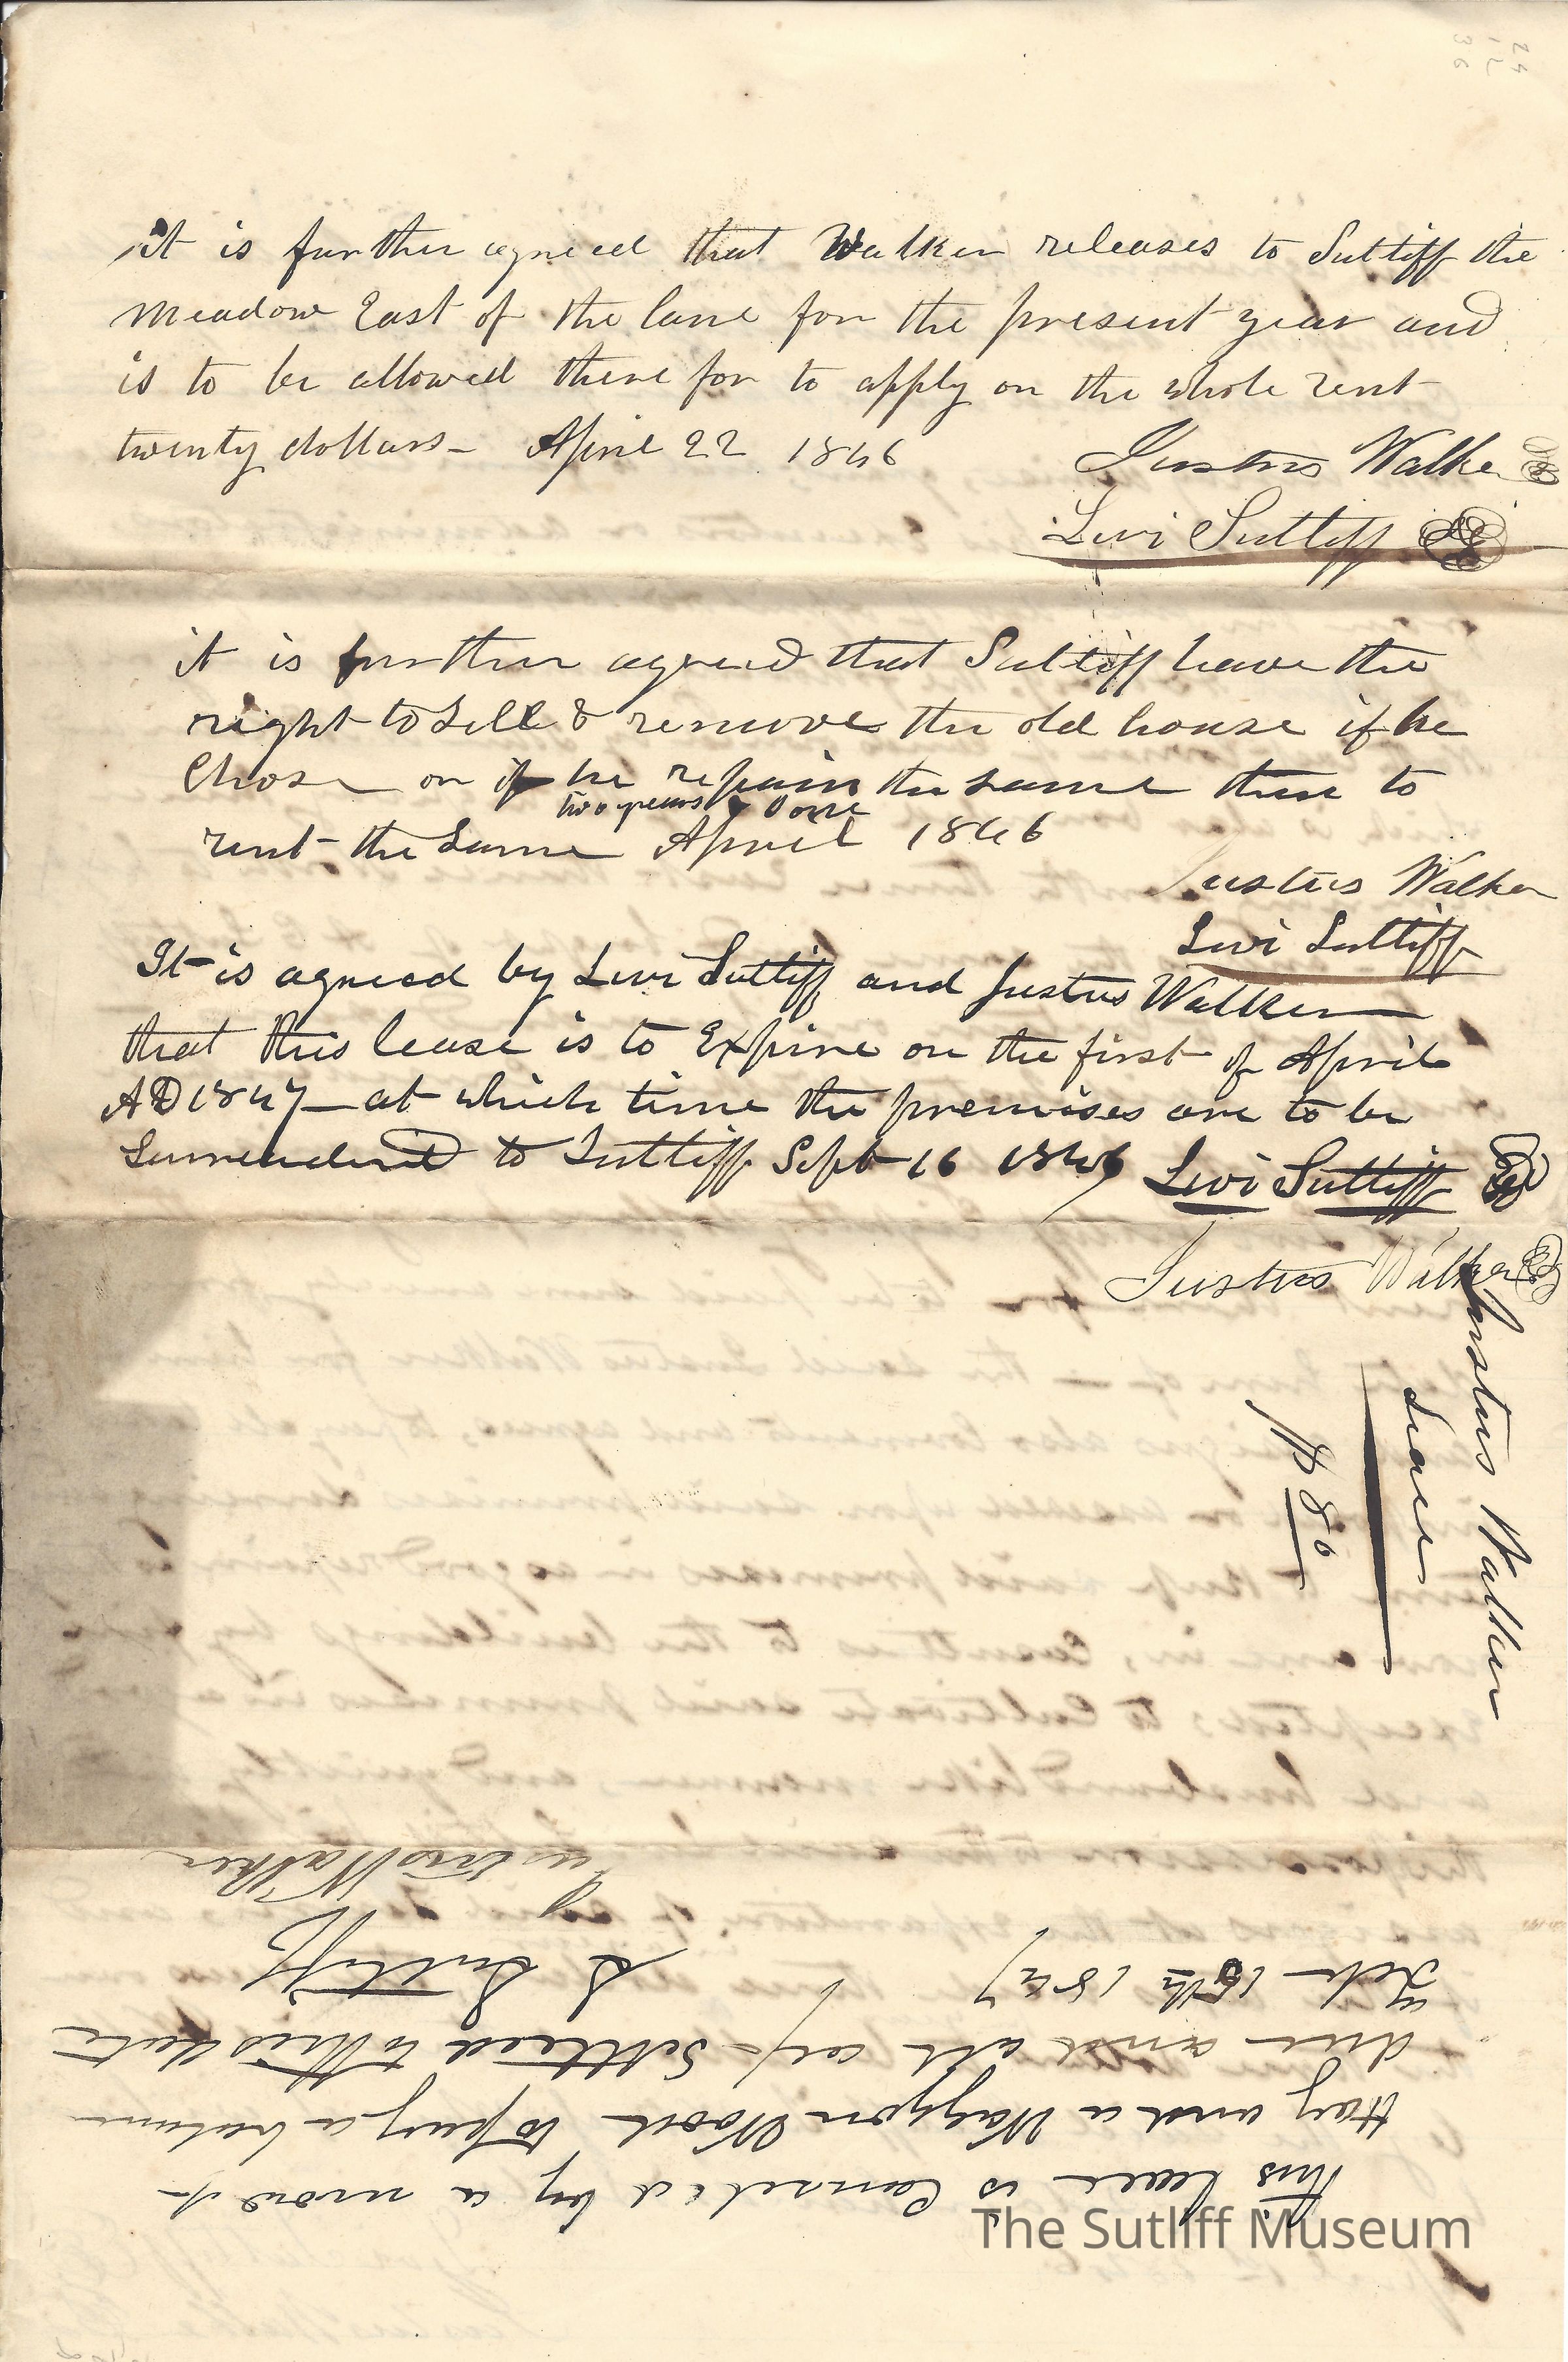 24
12
36
it is further agreed that Walker releases to Sutliff the
meadow East of the lane for the present year and
is to be allowed there for to apply on the whole rent
twenty dollars - April 22 1846
Justus Walker
Levi Sutliff
it is further agreed that Sutliff have the
right to sell & remove the old house if he
Chose or if he repairs the same then to
two years
rent the same April 1846
Justus Walker
Levi Sutliff
It is agreed by Levi Sutliff and Justus Walker
that this lease is to Expire on the first of April
AD 1847 - at which time the premises are to be
Surrenderd to Sutliff Sept 16 1846 Levi Sutliff
Justus Walker
Justus Walker
Lease
$80
This lease is Canseled by a
Hay and a Waggon Wood to pay a balance
due and all Settled to this date
Feb 15th 1847
L Sutliff
Justus Walker
The Sutliff Museum